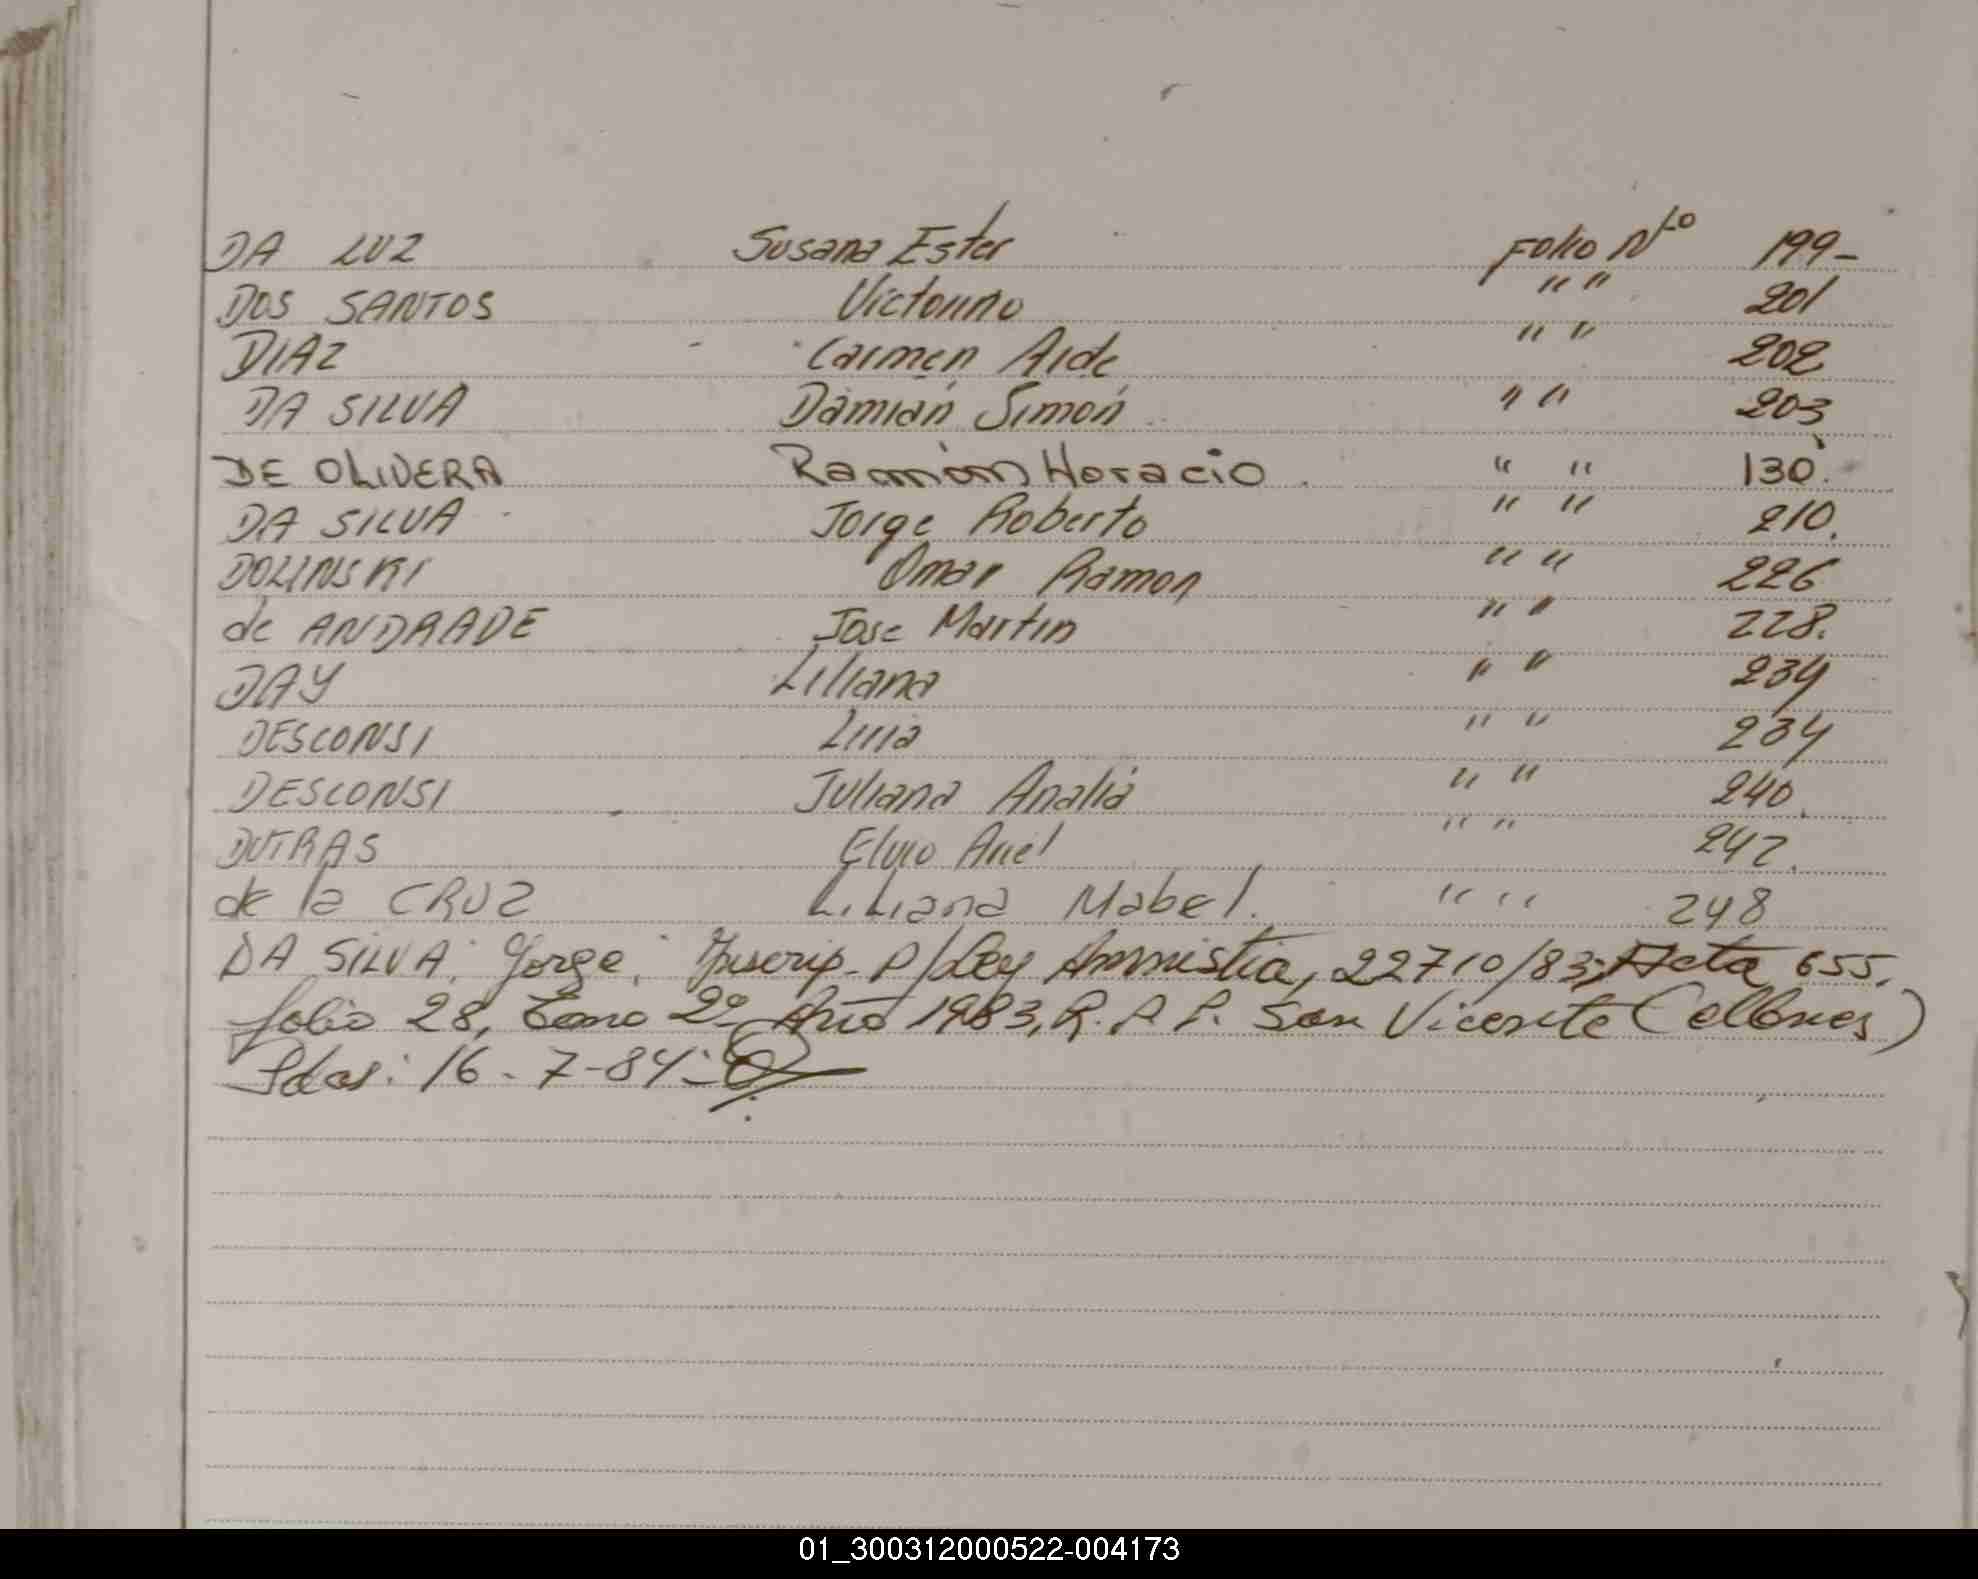 DA LUZ Susana Ester Folio Nro 199-
DOS SANTOS Victorino " " 201
DIAZ Carmen Aide " " 202
DA SILVA Damián Simón " " 203
DE OLIVERA Ramón Horacio " " 130.
DA SILVA Jorge Roberto " " 210.
DOLINSKI Omar Ramon " " 226
de ANDRADE Jose Martin " " 228.
DAY Liliana " " 234
DESCONSI Liria " " 234
DESCONSI Juliana Analia " " 240.
DUTRAS Elvio Ariel " " 242.
de la CRUZ Liliana Mabel. " " 248
DA SILVA; Jorge; Inscrip. P/Ley Amnistia, 22710/83; Acta 655.
folio 28, Tomo 2º Año 1983, R.P.P. San Vicente
Pdas: 16-7-84
01_300312000522-004173